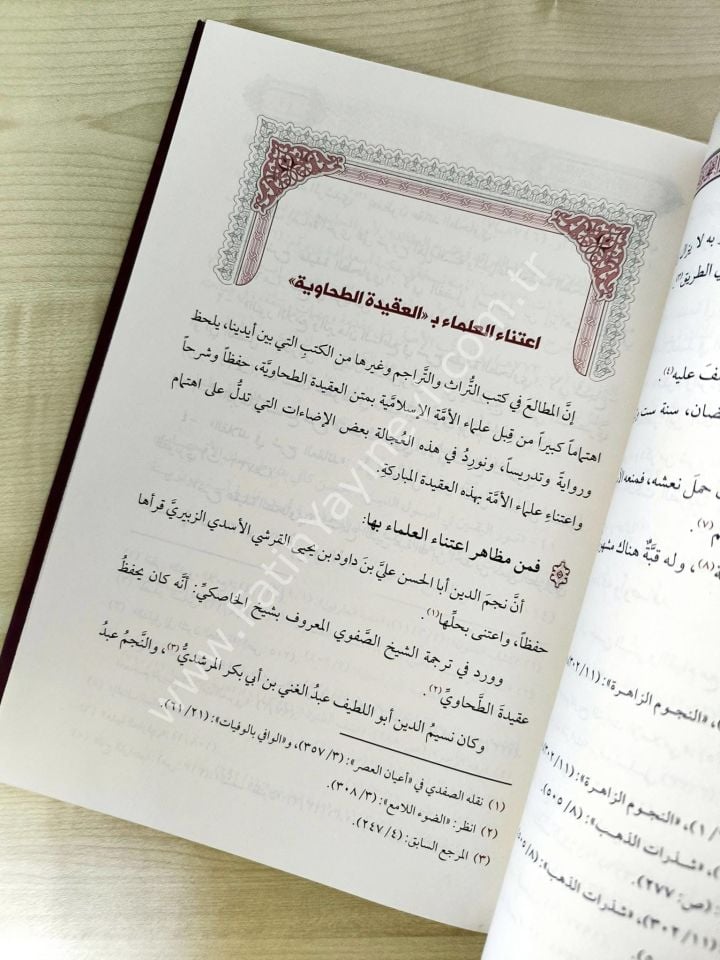 اعتناء العلماء بـ «العقيدة الطحاوية»
إنَّ المطالعَ في كتب التُّراث والتَّراجم وغيرها من الكتبِ التي بين أيدينا، يلحظ
اهتماماً كبيراً من قِبل علماء الأمَّة الإسلاميَّة بمتن العقيدة الطحاويَّة، حفظاً وشرحاً
وروايةً وتدريساً، ونورِدُ في هذه العُجالة بعض الإضاءات التي تدلُّ على اهتمام
واعتناءِ علماء الأمَّة بهذه العقيدة المباركةِ.
فمن مظاهر اعتناء العلماء بها:
أنَّ نجمَ الدين أبا الحسن عليَّ بنَ داود بن يحيى القرشي الأسدي الزبيريَّ قرأها
حفظاً، واعتنى بحلِّها(١).
وورد في ترجمة الشيخ الصَّفوي المعروف بشيخ الخاصكيِّ: أنَّه كان يحفظُ
عقيدةَ الطَّحاويِّ(٢).
وكان نسيمُ الدين أبو اللطيف عبدُ الغني بن أبي بكر المرشديُّ(٣)، والنَّجمُ عبدُ
(١) نقله الصفدي في «أعيان العصر»: (٣/ ٣٥٧)، و«الوافي بالوفيات»: (٢١/ ٦١).
(٢) انظر: «الضوء اللامع»: (٣/ ٣٠٨).
(٣) المرجع السابق: (٤/ ٢٤٧).
به لا يزال
ي الطريق(٣)
ف عليه(٤).
ضان، سنة ست
حملَ نعشه، فمنعه
م(٧).
(٨)، وله قبَّةٌ هناك
، «النجوم الزاهرة»: (١١/ ٢٠٢)
«النجوم الزاهرة»: (١١/ ٢٠٢)
، «شذرات الذهب»: (٨/ ٥٠٥)
(ص: ٢٧٧).
«شذرات الذهب»: (٨/ ٥٠٥)
(١١/ ٣٠٢)
www.FatihYayinevi.com.tr